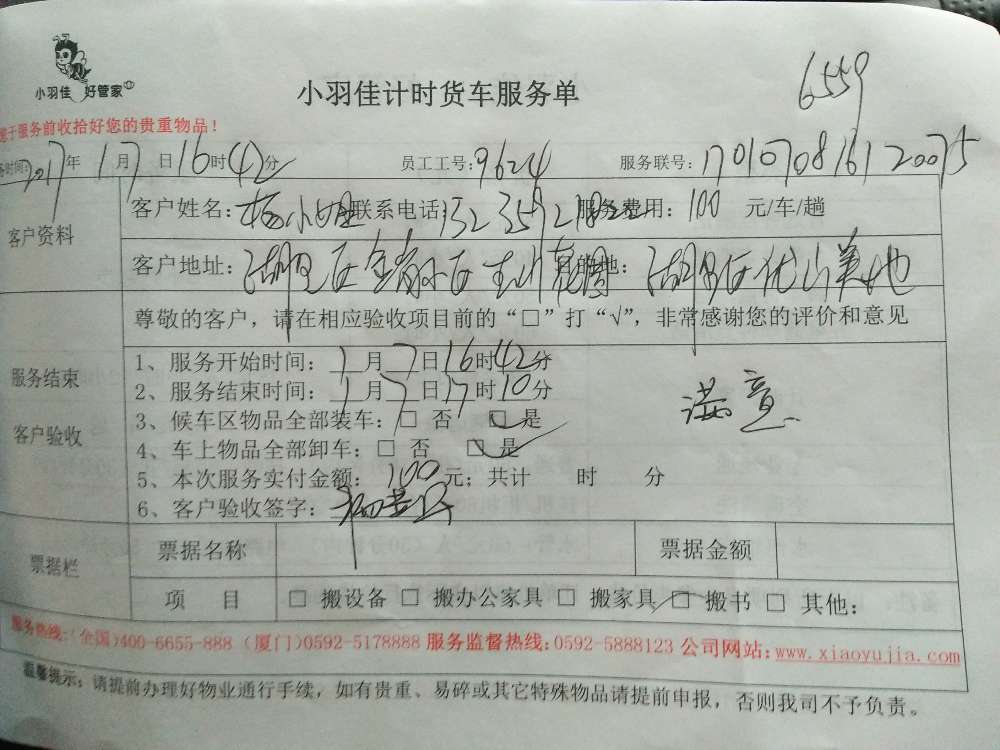 小羽佳 好管家
小羽佳计时货车服务单
6559
于服务前收拾好您的贵重物品！
时间：2017年1月7日16时42分 员工工号：9624 服务联号：1701070816120075
客户资料
客户姓名：杨小姐 联系电话： 服务费用：100 元/车/趟
客户地址：湖里区 目的地：湖里区优山美地
尊敬的客户，请在相应验收项目前的“□”打“√”，非常感谢您的评价和意见
服务结束
客户验收
1、服务开始时间：1月7日16时42分
2、服务结束时间：1月7日17时10分
满意
3、候车区物品全部装车：□ 否 □ 是
4、车上物品全部卸车：□ 否 □ 是
5、本次服务实付金额：100元；共计 时 分
6、客户验收签字：
票据栏
票据名称 票据金额
项 目 □ 搬设备 □ 搬办公家具 □ 搬家具 □ 搬书 □ 其他：
服务热线：（全国）400-6655-888（厦门）0592-5178888 服务监督热线：0592-5888123 公司网站：www.xiaoyujia.com
温馨提示：请提前办理好物业通行手续，如有贵重、易碎或其它特殊物品请提前申报，否则我司不予负责。